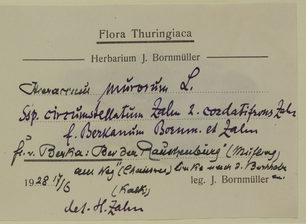 Flora Thuringiaca
Herbarium J. Bornmüller
Hieracium murorum L.
Ssp. circumstellatum Zahn 2. cordatifrons Zahn
f. Berkanum Bornm. et Zahn
fr. v. Berka: Bei der
am Weg (Chaussee) links nach d.
1928 17/6 leg. J. Bornmüller
(Kalk)
det. H. Zahn